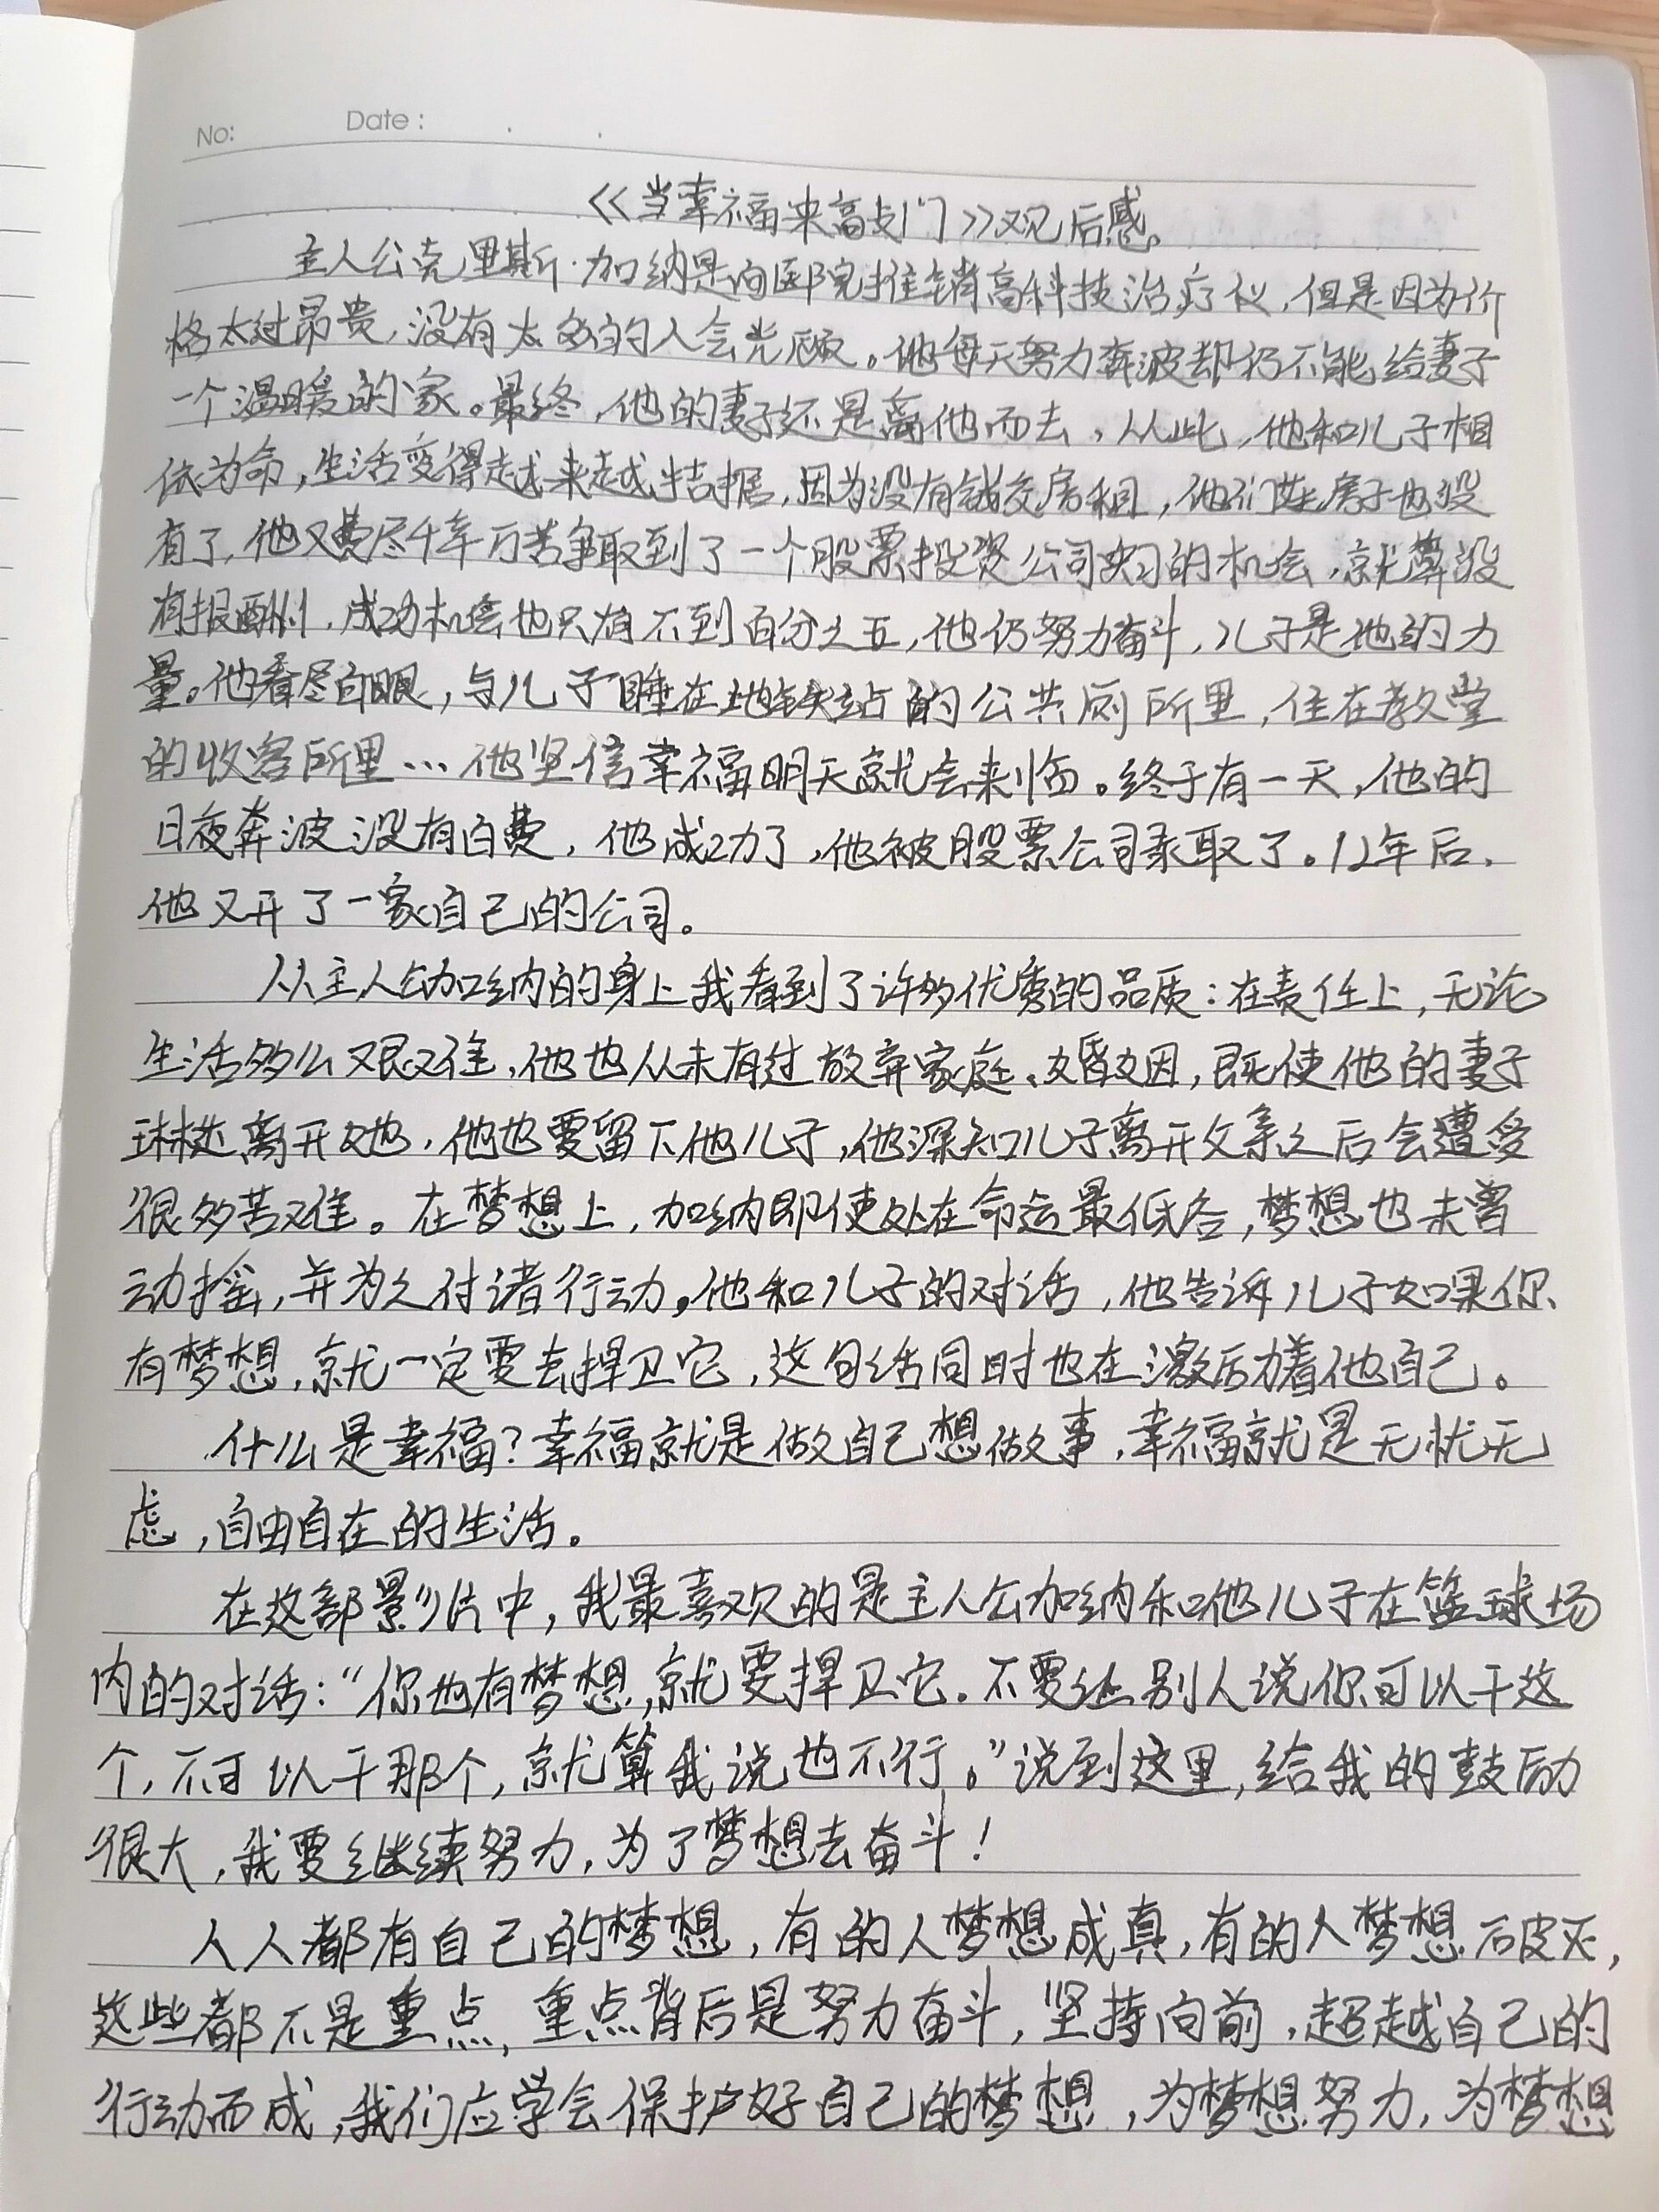 No:
Date:
《当幸福来高敲门》观后感。
主人公克里斯·加纳是向医院推销高科技治疗仪,但是因为价
格太过昂贵,没有太多的人会光顾。他每天努力奔波却仍不能给妻子
一个温暖的家。最终,他的妻子还是离他而去,从此,他和儿子相
依为命,生活变得越来越拮据,因为没有钱交房租,他们连房子也没
有了,他又费尽千辛万苦争取到了一个股票投资公司实习的机会,就算没
有报酬,成功机会也只有不到百分之五,他仍努力奋斗,儿子是他的力
量。他看尽白眼,与儿子睡在地铁站的公共厕所里,住在教堂
的收容所里…他坚信幸福明天就会来临。终于有一天,他的
日夜奔波没有白费,他成功了,他被股票公司录取了。12年后,
他又开了一家自己的公司。
从主人公加纳的身上我看到了许多优秀的品质:在责任上,无论
生活多么艰难,他也从未有过放弃家庭、婚姻,既使他的妻子
琳达离开她,他也要留下他儿子,他深知儿子离开父亲之后会遭受
很多苦难。在梦想上,加纳即使处在命运最低谷,梦想也未曾
动摇,并为之付诸行动。他和儿子的对话,他告诉儿子如果你
有梦想,就一定要去捍卫它,这句话同时也在激励着他自己。
什么是幸福?幸福就是做自己想做事,幸福就是无忧无
虑,自由自在的生活。
在这部影片中,我最喜欢的是主人公加纳和他儿子在篮球场
内的对话:“你也有梦想,就要捍卫它。不要让别人说你可以干这
个,不可以干那个,就算我说也不行。”说到这里,给我的鼓励
很大,我要继续努力,为了梦想去奋斗!
人人都有自己的梦想,有的人梦想成真,有的人梦想破灭,
这些都不是重点,重点背后是努力奋斗,坚持向前,超越自己的
行动而成,我们应学会保护好自己的梦想,为梦想努力,为梦想